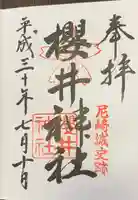 奉拝
尼崎城史跡
櫻井神社
平成三十年七月十日